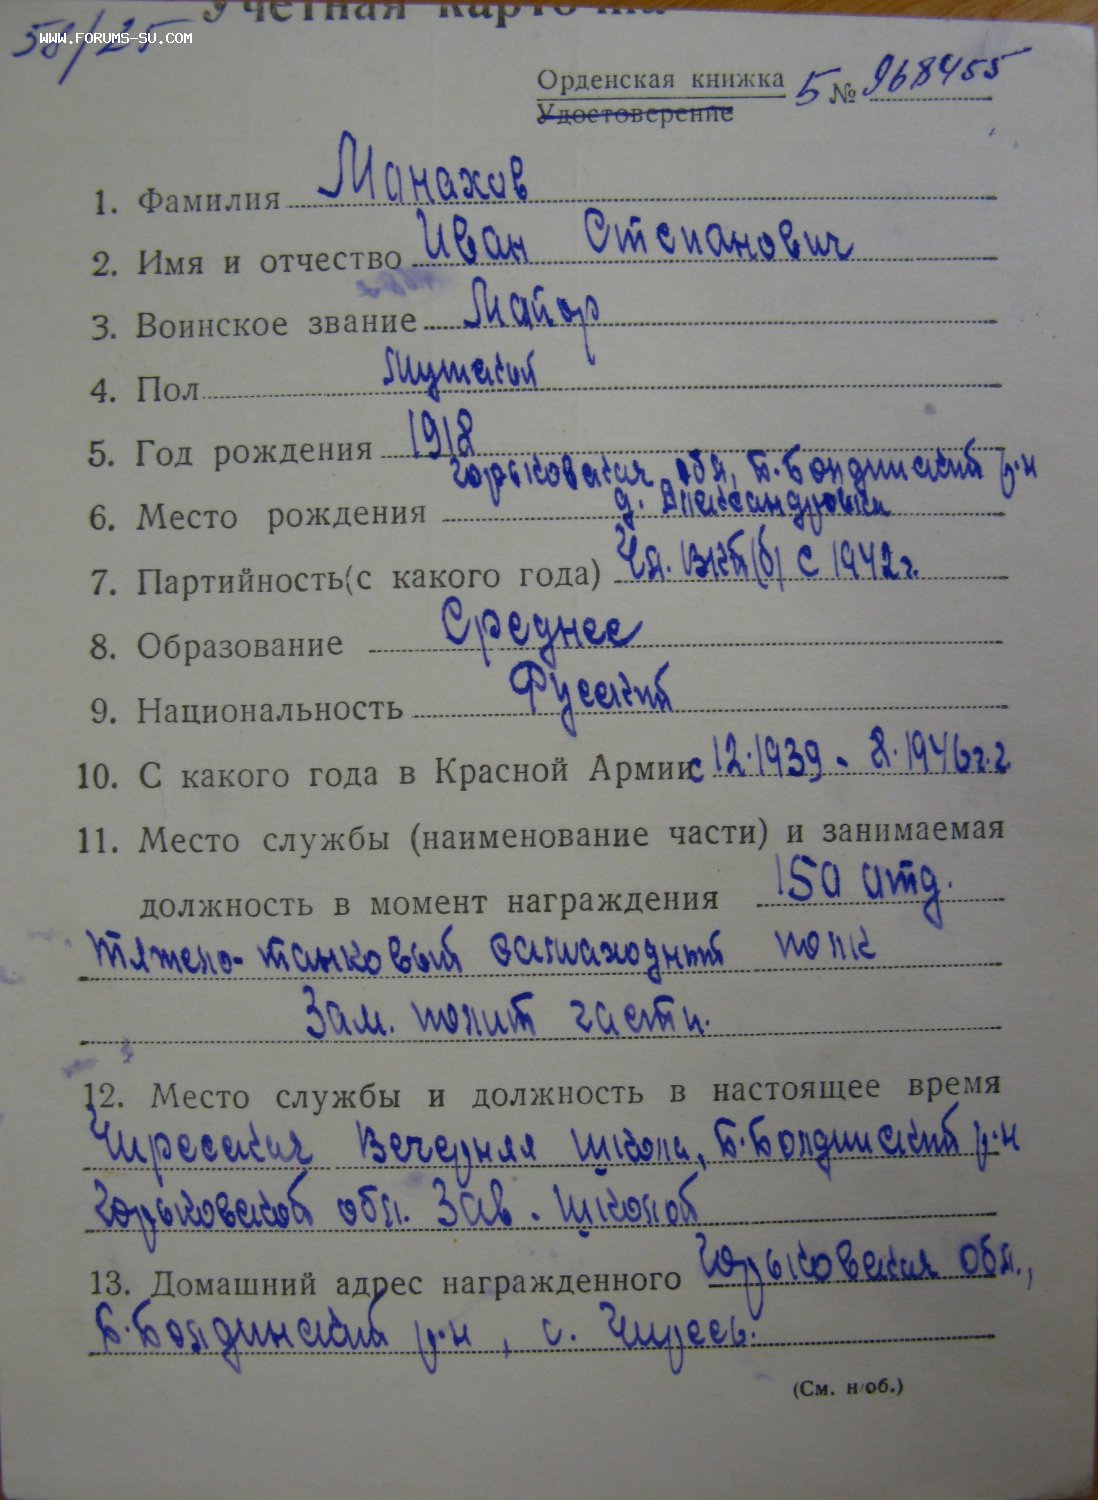 Учетная карточка
58/25
WWW.FORUMS-SU.COM
Орденская книжка Б № 968455
Удостоверение
1. Фамилия Манахов
2. Имя и отчество Иван Степанович
3. Воинское звание Майор
4. Пол Мужской
5. Год рождения 1918
Горьковская обл, Б.Болдинский р-н
6. Место рождения д. Александровка
7. Партийность (с какого года) Чл. ВКП(б) с 1942 г.
8. Образование Среднее
9. Национальность Русский
10. С какого года в Красной Армии с 12.1939 - 8.1946 г.г
11. Место службы (наименование части) и занимаемая
должность в момент награждения 150 отд.
тяжело-танковый самоходный полк
Зам. полит части.
12. Место службы и должность в настоящее время
Вечерняя школа, Б.Болдинский р-н
Горьковской обл. Зав. школой
13. Домашний адрес награжденного Горьковская обл.,
Б.Болдинский р-н, с.
(См. н/об.)